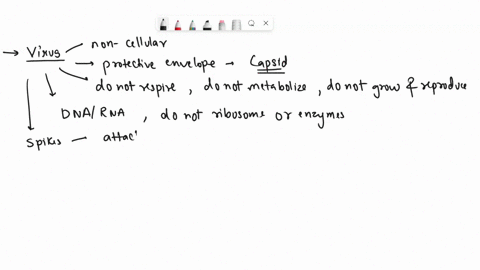 → Virus - non-cellular
→ protective envelope → Capsid
do not respire, do not metabolize, do not grow & reproduce
DNA/RNA, do not ribosome or enzymes
Spikes - attac